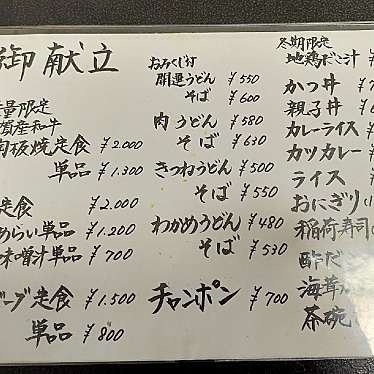 御献立
量限定
賀産和牛
陶板焼定食 ¥2.000
単品 ¥1.300
定食 ¥2.000
めらい単品 ¥1.200
味噌汁単品 ¥700
ーブ定食 ¥1.500
単品 ¥800
おみくじ付
開運うどん ¥550
そば ¥600
肉うどん ¥580
そば ¥630
きつねうどん ¥500
そば ¥550
わかめうどん ¥480
そば ¥530
チャンポン ¥700
冬期限定
地鶏だご汁 ¥
かつ丼 ¥
親子丼 ¥
カレーライス ¥
カツカレー ¥
ライス ¥
おにぎり
稲荷寿司
酢だ
海茸
茶碗